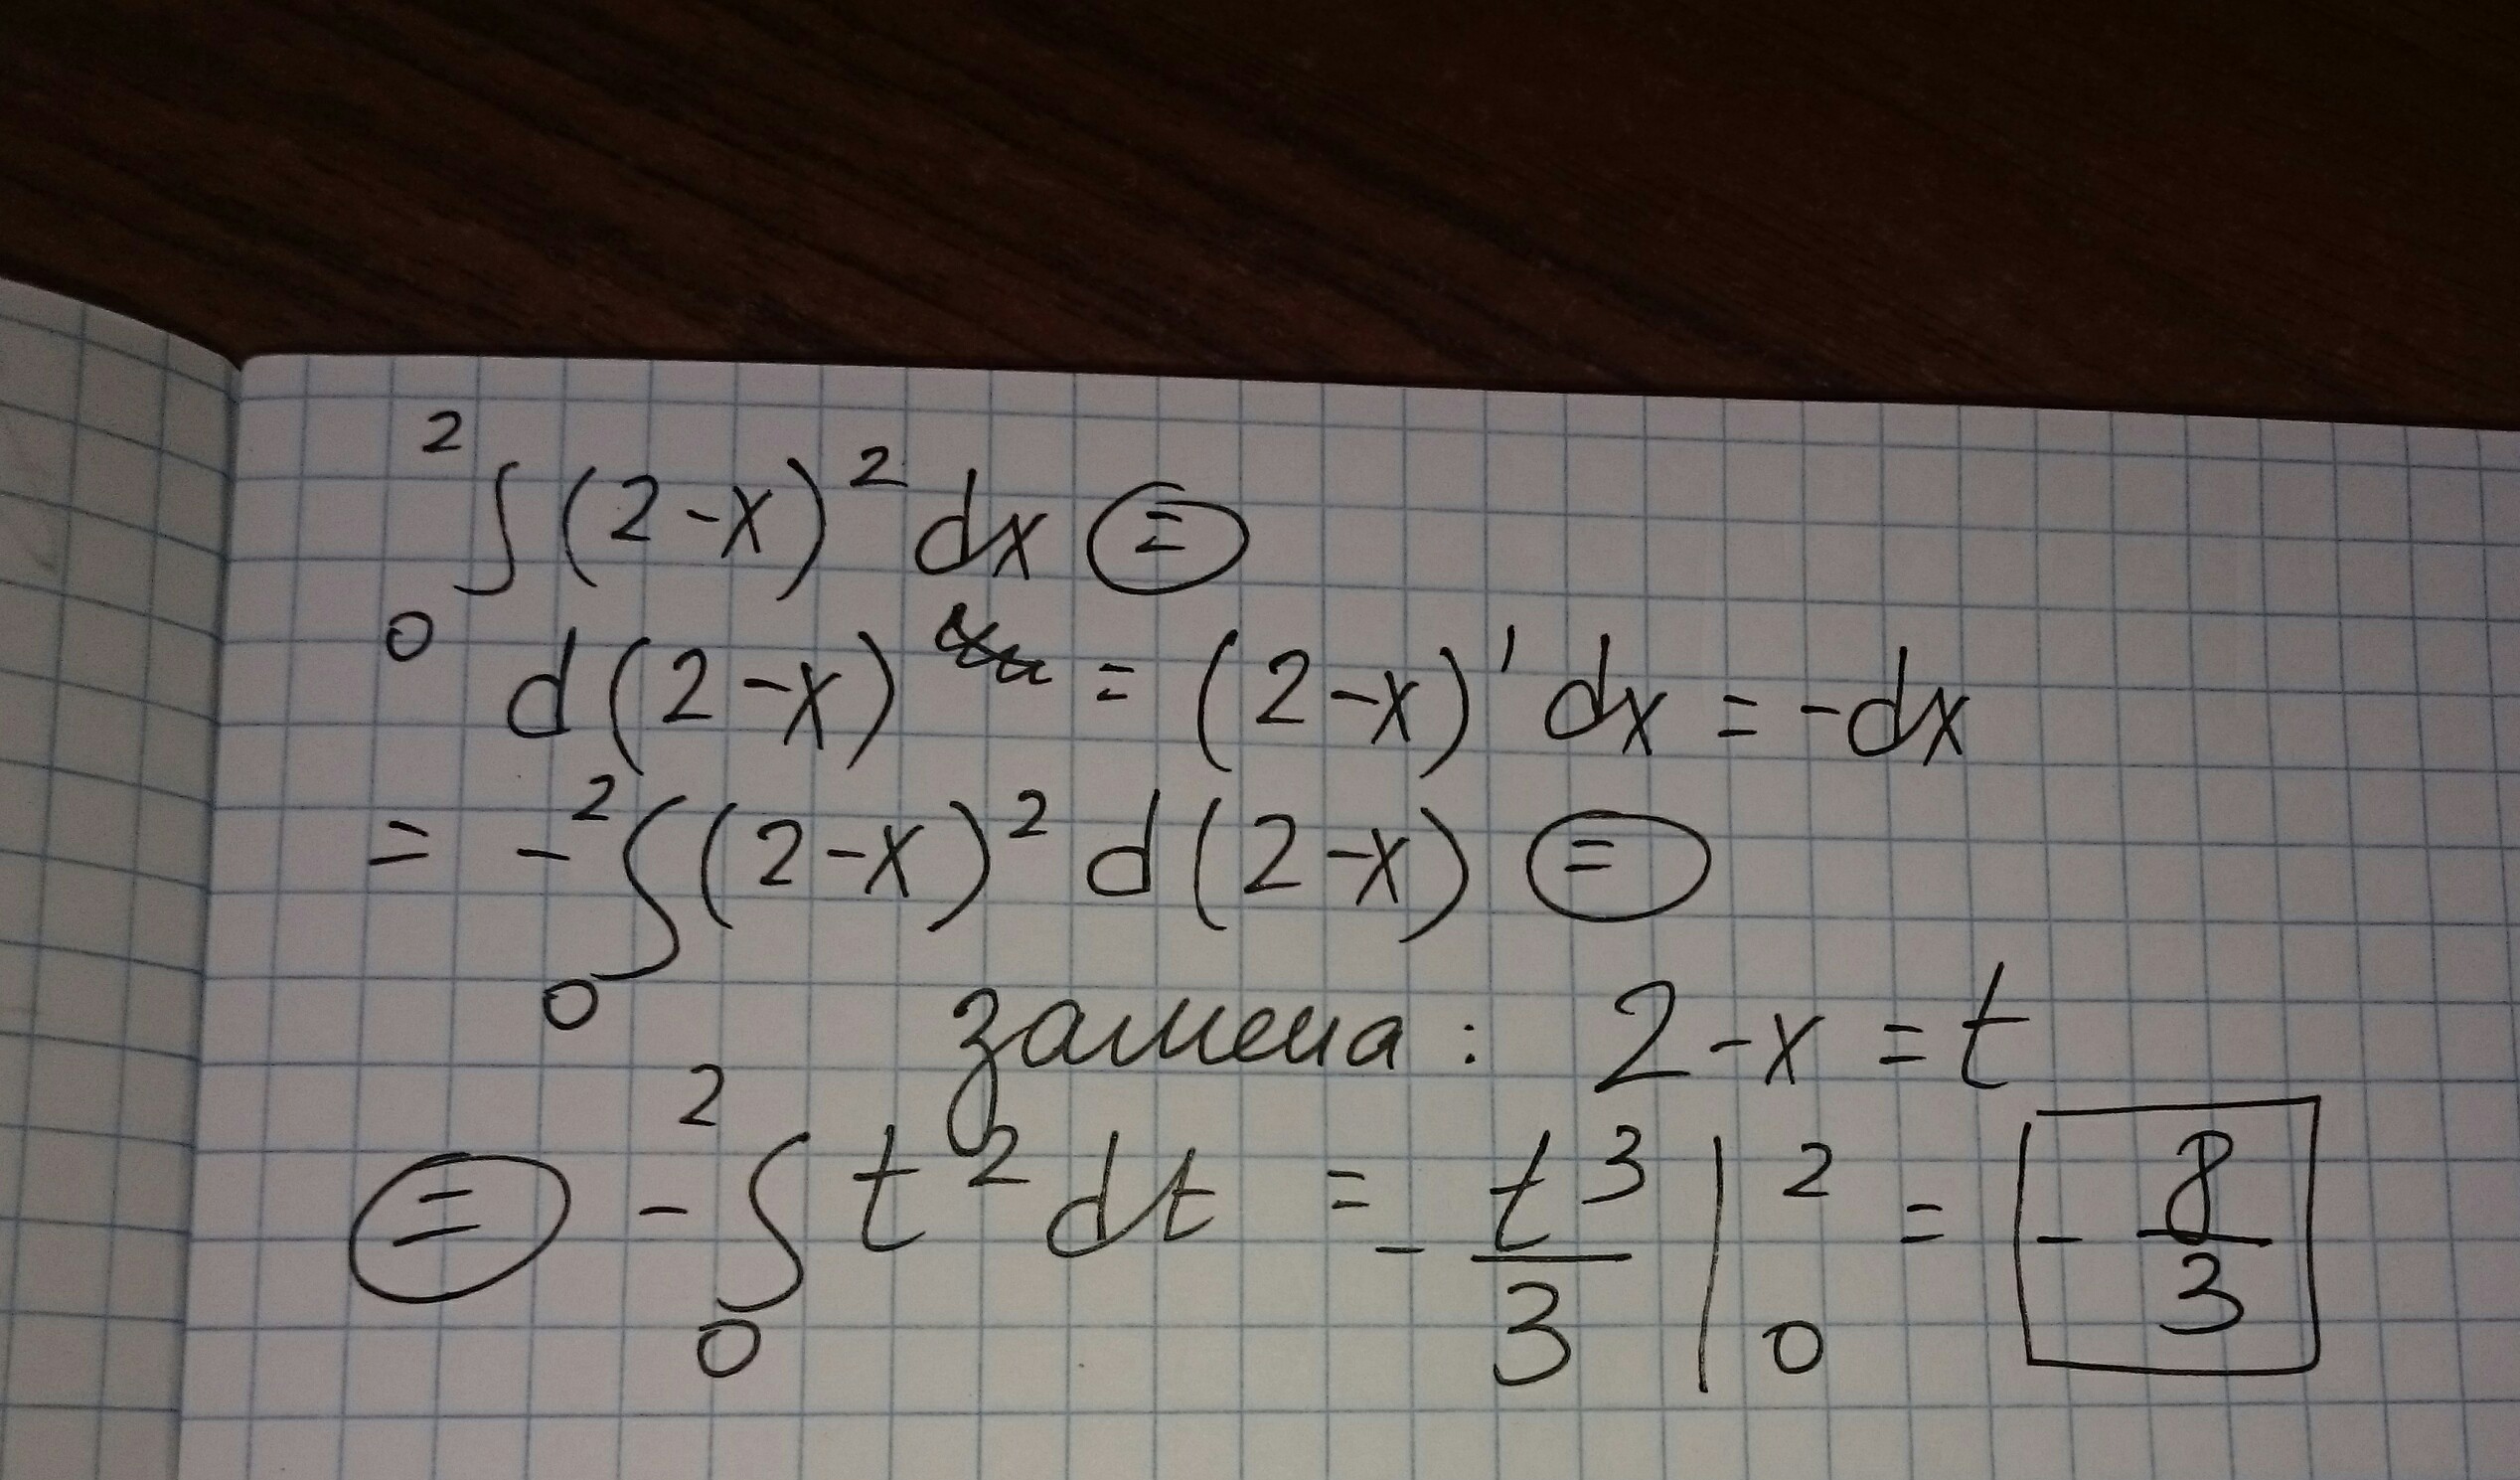 ∫₀² (2-x)² dx =
d(2-x) = (2-x)' dx = -dx
= -∫₀² (2-x)² d(2-x) =
замена: 2-x = t
= -∫₀² t² dt = - t³/3 |₀² = - 8/3